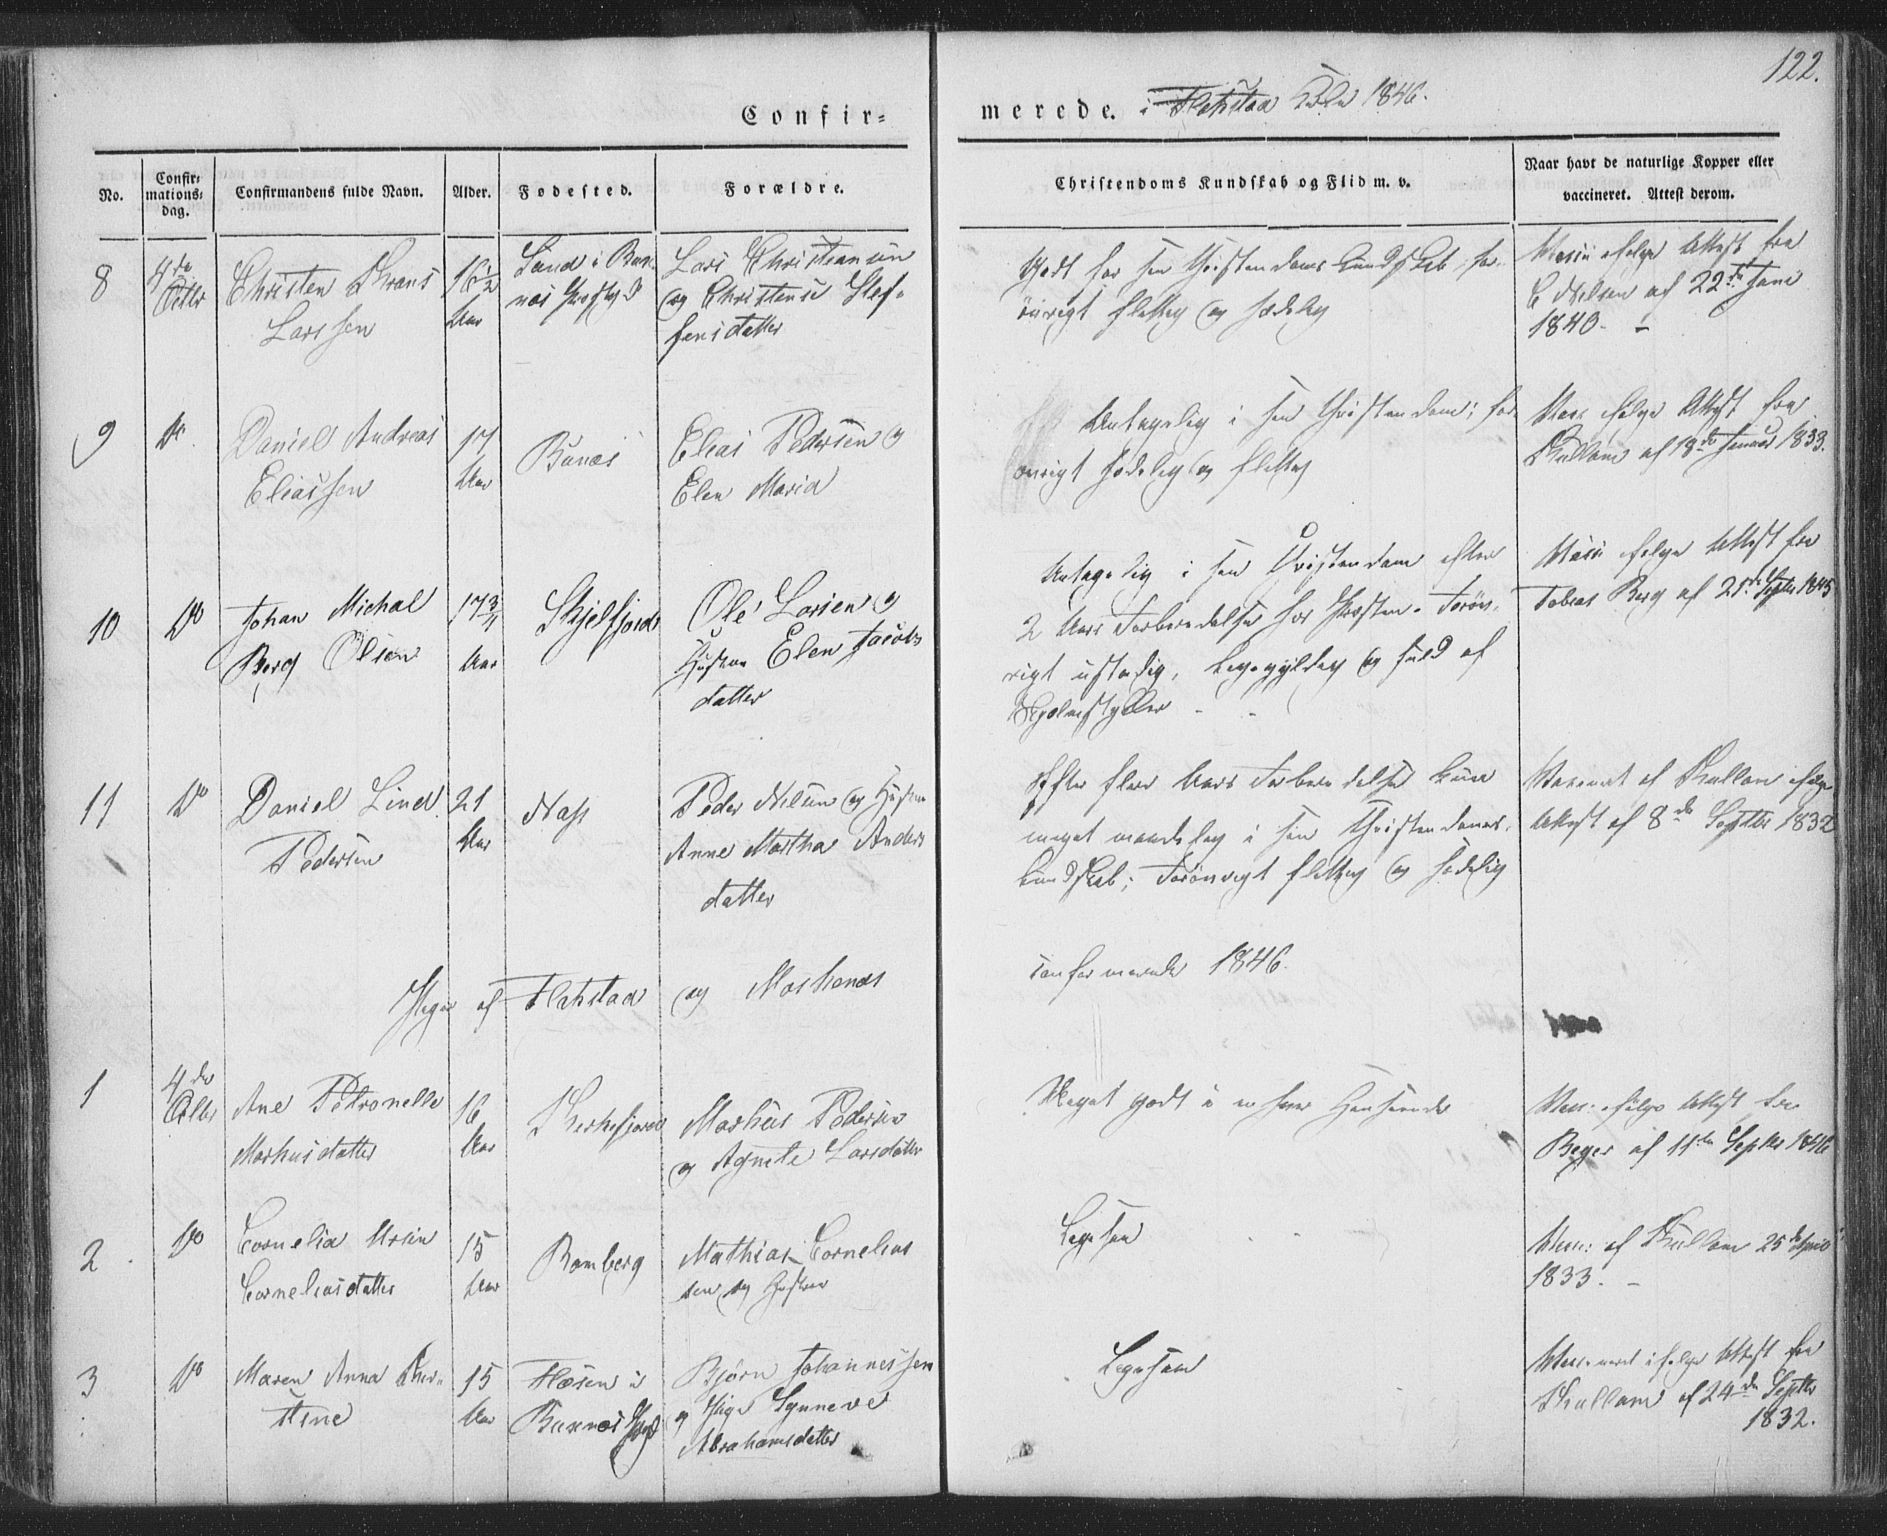 122.
Confir-
merede. i Flakstad 1846.
No.
Confir-
mations-
dag.
Confirmandens fulde Navn.
Alder.
Fodested.
Forældre.
Christendoms Kundskab og Flid m. v.
Naar havt de naturlige Kopper eller
vaccineret. Attest derom.
8
4de
Octbr
Christen Krans
Larssen
16½
Aar
Sund i Bux-
næs Præstgd
Lars Christiansen
og Christense Stef-
fensdatter
Godt for sen Christendoms Kundskab, for-
øvrigt flittig og sædelig
Vacci: ifølge Attest fra
C Nilsen af 22de Juni
1840. –
9
Do
Daniel Andreas
Eliassen
17
Aar
Elias Pedersen og
Elen Maria
Antagelig i sen Christendom; for-
øvrigt sædelig og flittig
Vacc. ifølge Attest fra
Kullam af 18de Januar 1833.
10
Do
Johan Michal
Berg Olsen
17¾
Aar
Skjelfjord
Ole Larsen og
Hustru Elen Jacobs
datter
Antagelig i sen Christendom efter
2 Aars Forberedelse hos Præsten. Forøv-
rigt ustadig, ligegyldig og fuld af
Skjelmstykker
Vacci: ifølge Attest fra
Tobias Berg af 21de Septbr 1845
11
Do
Daniel Lind
Pedersen
21
Aar
Næss
Peder Nilsen og Hustru
Anne Martha Anders
datter
Efter flere Aars Forberedelse kun
meget maadelig i sin Christendoms-
kundskab; Forøvrigt flittig og sædelig
Vaccineret af Kullam ifølge
Attest af 8de Septbr 1832
Piger af Flakstad og Moskenæs
confirmerede 1846.
1
4de
Octbr
Ane Petronelle
Markusdatter
16
Aar
Kirkefjord
Markus Pedersen
og Agnete Larsdatter
Meget godt i enhver Henseende
Vacc: ifølge Attest fra
Beyer af 11te Septbr 1846
2
Do
Cornelia
Corneliusdatter
15
Aar
Ramberg
Mathias Cornelius
sen og Hustru
Ligesaa
Vacc: af Kullam 25de April
1833. –
3
Do
Maren Anna Kir-
stine
15
Aar
Flæsen i
Buxnæs Præstgd
Bjørn Johannessen
og Pige Synneve
Abrahamsdatter
Ligesaa
Vaccineret ifølge Attest fra
Kullam af 24de Septbr
1832.